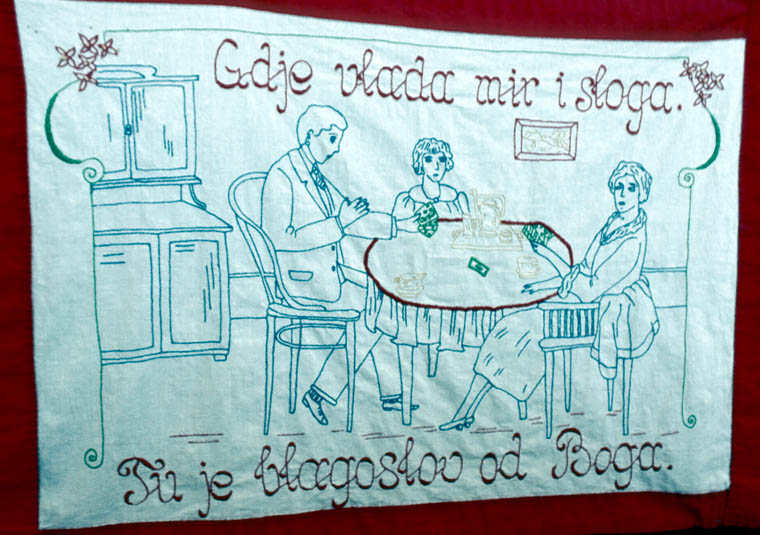 Gdje vlada mir i sloga.
Tu je blagoslov od Boga.